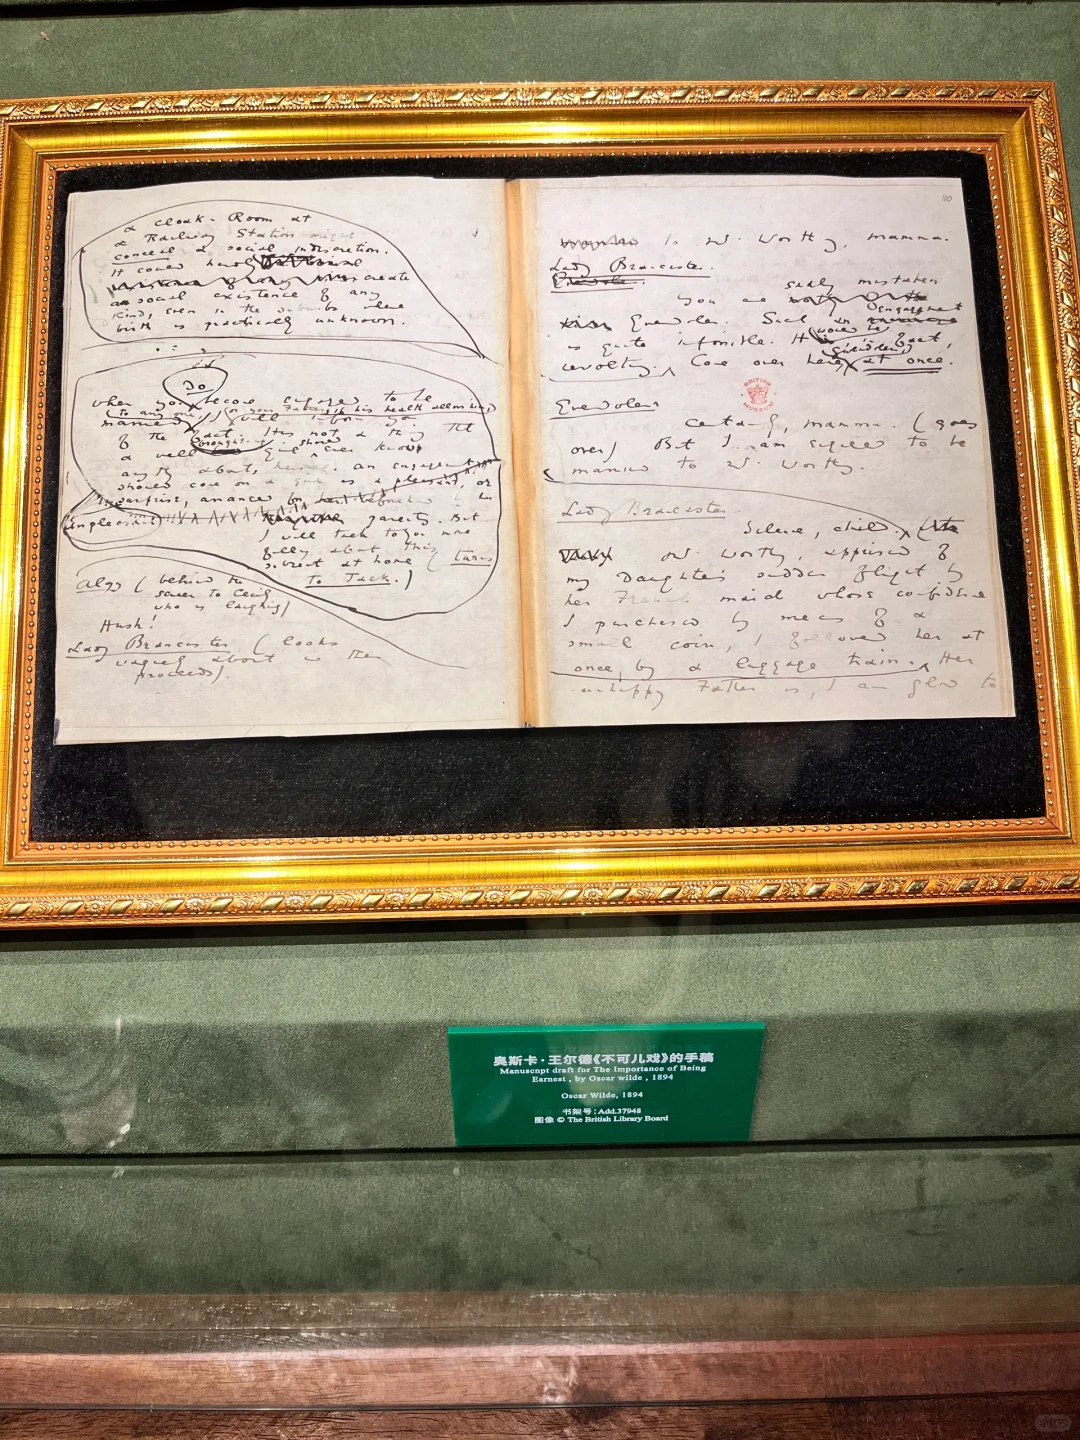 a cloak-Room at
a Railway Station might
conceal a social indiscretion.
It could hardly
create
a social existence of any
kind, even in the suburbs where
birth is practically unknown.
Do
when you become engaged to be
(to any one) (or your Father, if his health allows him)
married I will inform you
of the fact.
a well girl ever know
anything about, an engagement
should come on a girl as a pleasant, or
unpleasant
surprise, arranged for her
parents. But
I will talk to you more
fully about this
subject at home (turns
To Jack.)
Algy (behind the
screen to Cecily
who is laughing)
Hush!
Lady Brancaster (looks
vaguely about and then
proceeds).
110
to Mr. Worthing, mamma.
Lady Brancaster.
Gwendolen.
sadly mistaken
You are
Gwendolen. Such an engagement
is quite impossible. It would be
revolting. Come over here at once.
BRITISH MUSEUM
Gwendolen
Certainly, mamma. (goes
over) But I am engaged to be
married to Mr. Worthing.
Lady Brancaster
Silence, child.
Mr. Worthing, apprised of
my Daughter's sudden flight by
her French maid whose confidence
I purchased by means of a
small coin, I followed her at
once, by a luggage train. Her
unhappy Father is, I am glad to
奥斯卡·王尔德《不可儿戏》的手稿
Manuscript draft for The Importance of Being
Earnest , by Oscar wilde , 1894
Oscar Wilde, 1894
书架号：Add.37948
图像 © The British Library Board